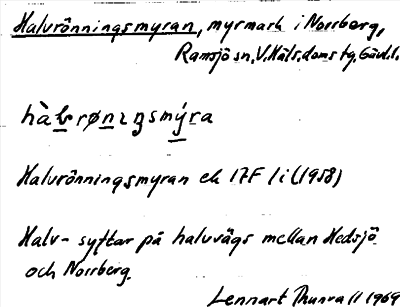 Halvrönningsmyran, myrmark i Norrberg,
Ramsjö sn, V. Häls. doms tg, Gävl. l.
hàlvrønıŋsmýra
Halvrönningsmyran ek 17F 1i (1958)
Halv- syftar på halvvägs mellan Hedsjö
och Norrberg.
Lennart Thunvall 1969